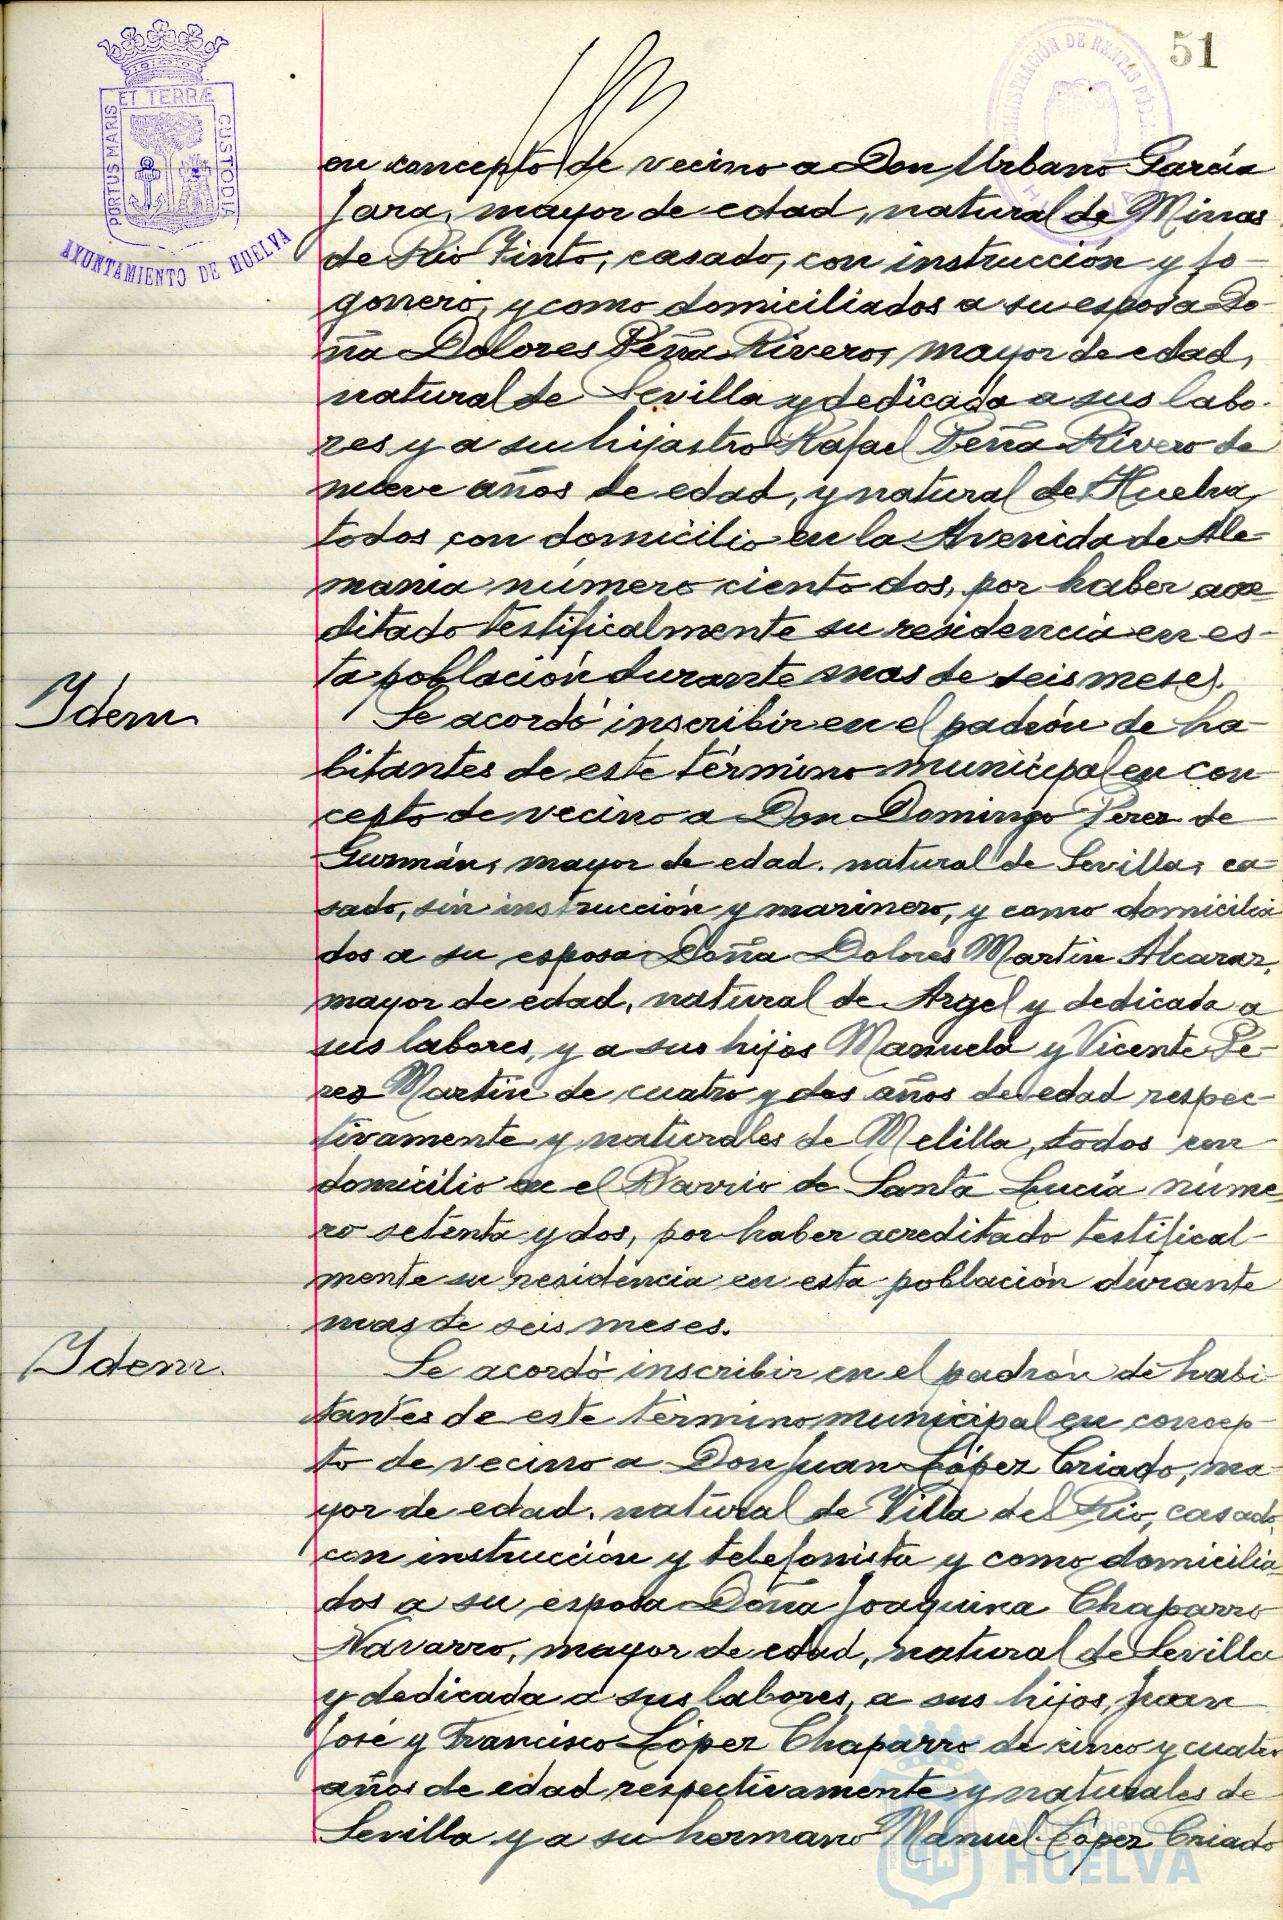 51
PORTUS MARIS ET TERRÆ CUSTODIA
AYUNTAMIENTO DE HUELVA
ADMINISTRACIÓN DE RENTAS PÚBLICAS
en concepto de vecino a Don Urbano García
Jara, mayor de edad, natural de Minas
de Rio Tinto, casado, con instrucción y fo-
gonero, y como domiciliados a su esposa Do-
ña Dolores Peña Rivero, mayor de edad,
natural de Sevilla y dedicada a sus labo-
res y a su hijastro Rafael Peña Rivero de
nueve años de edad, y natural de Huelva,
todos con domicilio en la Avenida de Ale-
mania número ciento dos, por haber acre-
ditado testificalmente su residencia en es-
ta población durante mas de seis meses.
Idem
Se acordó inscribir en el padrón de ha-
bitantes de este término municipal en con-
cepto de vecino a Don Domingo Perez de
Guzmán, mayor de edad, natural de Sevilla, ca-
sado, sin instrucción y marinero, y como domicilia
dos a su esposa Doña Dolores Martin Alcaraz,
mayor de edad, natural de Argel y dedicada a
sus labores, y a sus hijos Manuela y Vicente Pe-
rez Martin de cuatro y dos años de edad respec-
tivamente y naturales de Melilla, todos con
domicilio en el Barrio de Santa Lucía núme-
ro setenta y dos, por haber acreditado testifical-
mente su residencia en esta población durante
mas de seis meses.
Idem.
Se acordó inscribir en el padrón de habi-
tantes de este término municipal en concep-
to de vecino a Don Juan López Criado, ma-
yor de edad, natural de Villa del Rio, casado,
con instrucción y telefonista y como domicilia-
dos a su esposa Doña Joaquina Chaparro
Navarro, mayor de edad, natural de Sevilla
y dedicada a sus labores, a sus hijos, Juan
José y Francisco López Chaparro de cinco y cuatro
años de edad respectivamente y naturales de
Sevilla y a su hermano Manuel López Criado
Ayuntamiento de
HUELVA